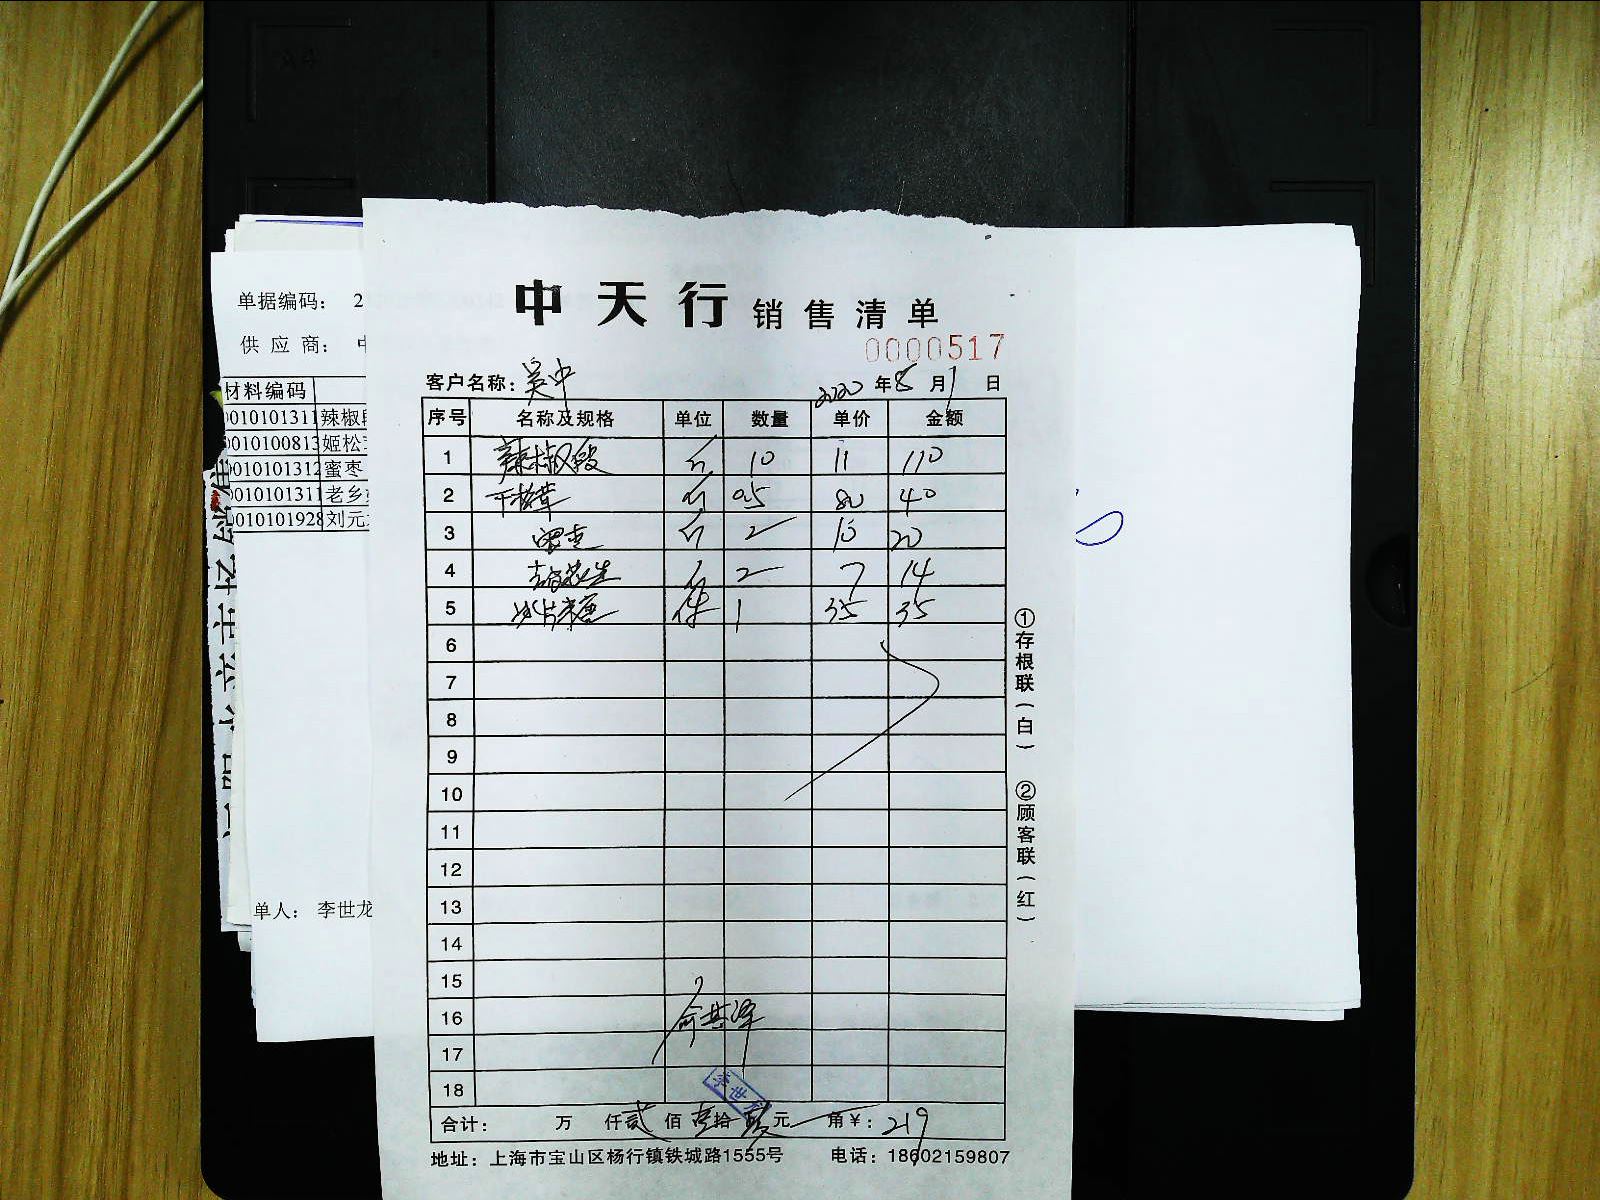 单据编码： 2
供 应 商： 中
材料编码
0010101311 辣椒段
0010100813 姬松茸
0010101312 蜜枣
0010101311 老乡
0010101928 刘元
单人： 李世龙
中天行 销售清单
0000517
客户名称：吴中 2020 年 8 月 1 日
序号 名称及规格 单位 数量 单价 金额
1 辣椒段 斤 10 11 110
2 干松茸 斤 0.5 80 40
3 蜜枣 斤 2 10 20
4 2 7 14
5 冰片糖 件 1 35 35
6
7
8
9
10
11
12
13
14
15
16
17
18
李世龙
合计： 万 仟 贰 佰 壹 拾 玖 元 角 ¥：219
地址：上海市宝山区杨行镇铁城路1555号 电话：18602159807
①存根联（白）
②顾客联（红）